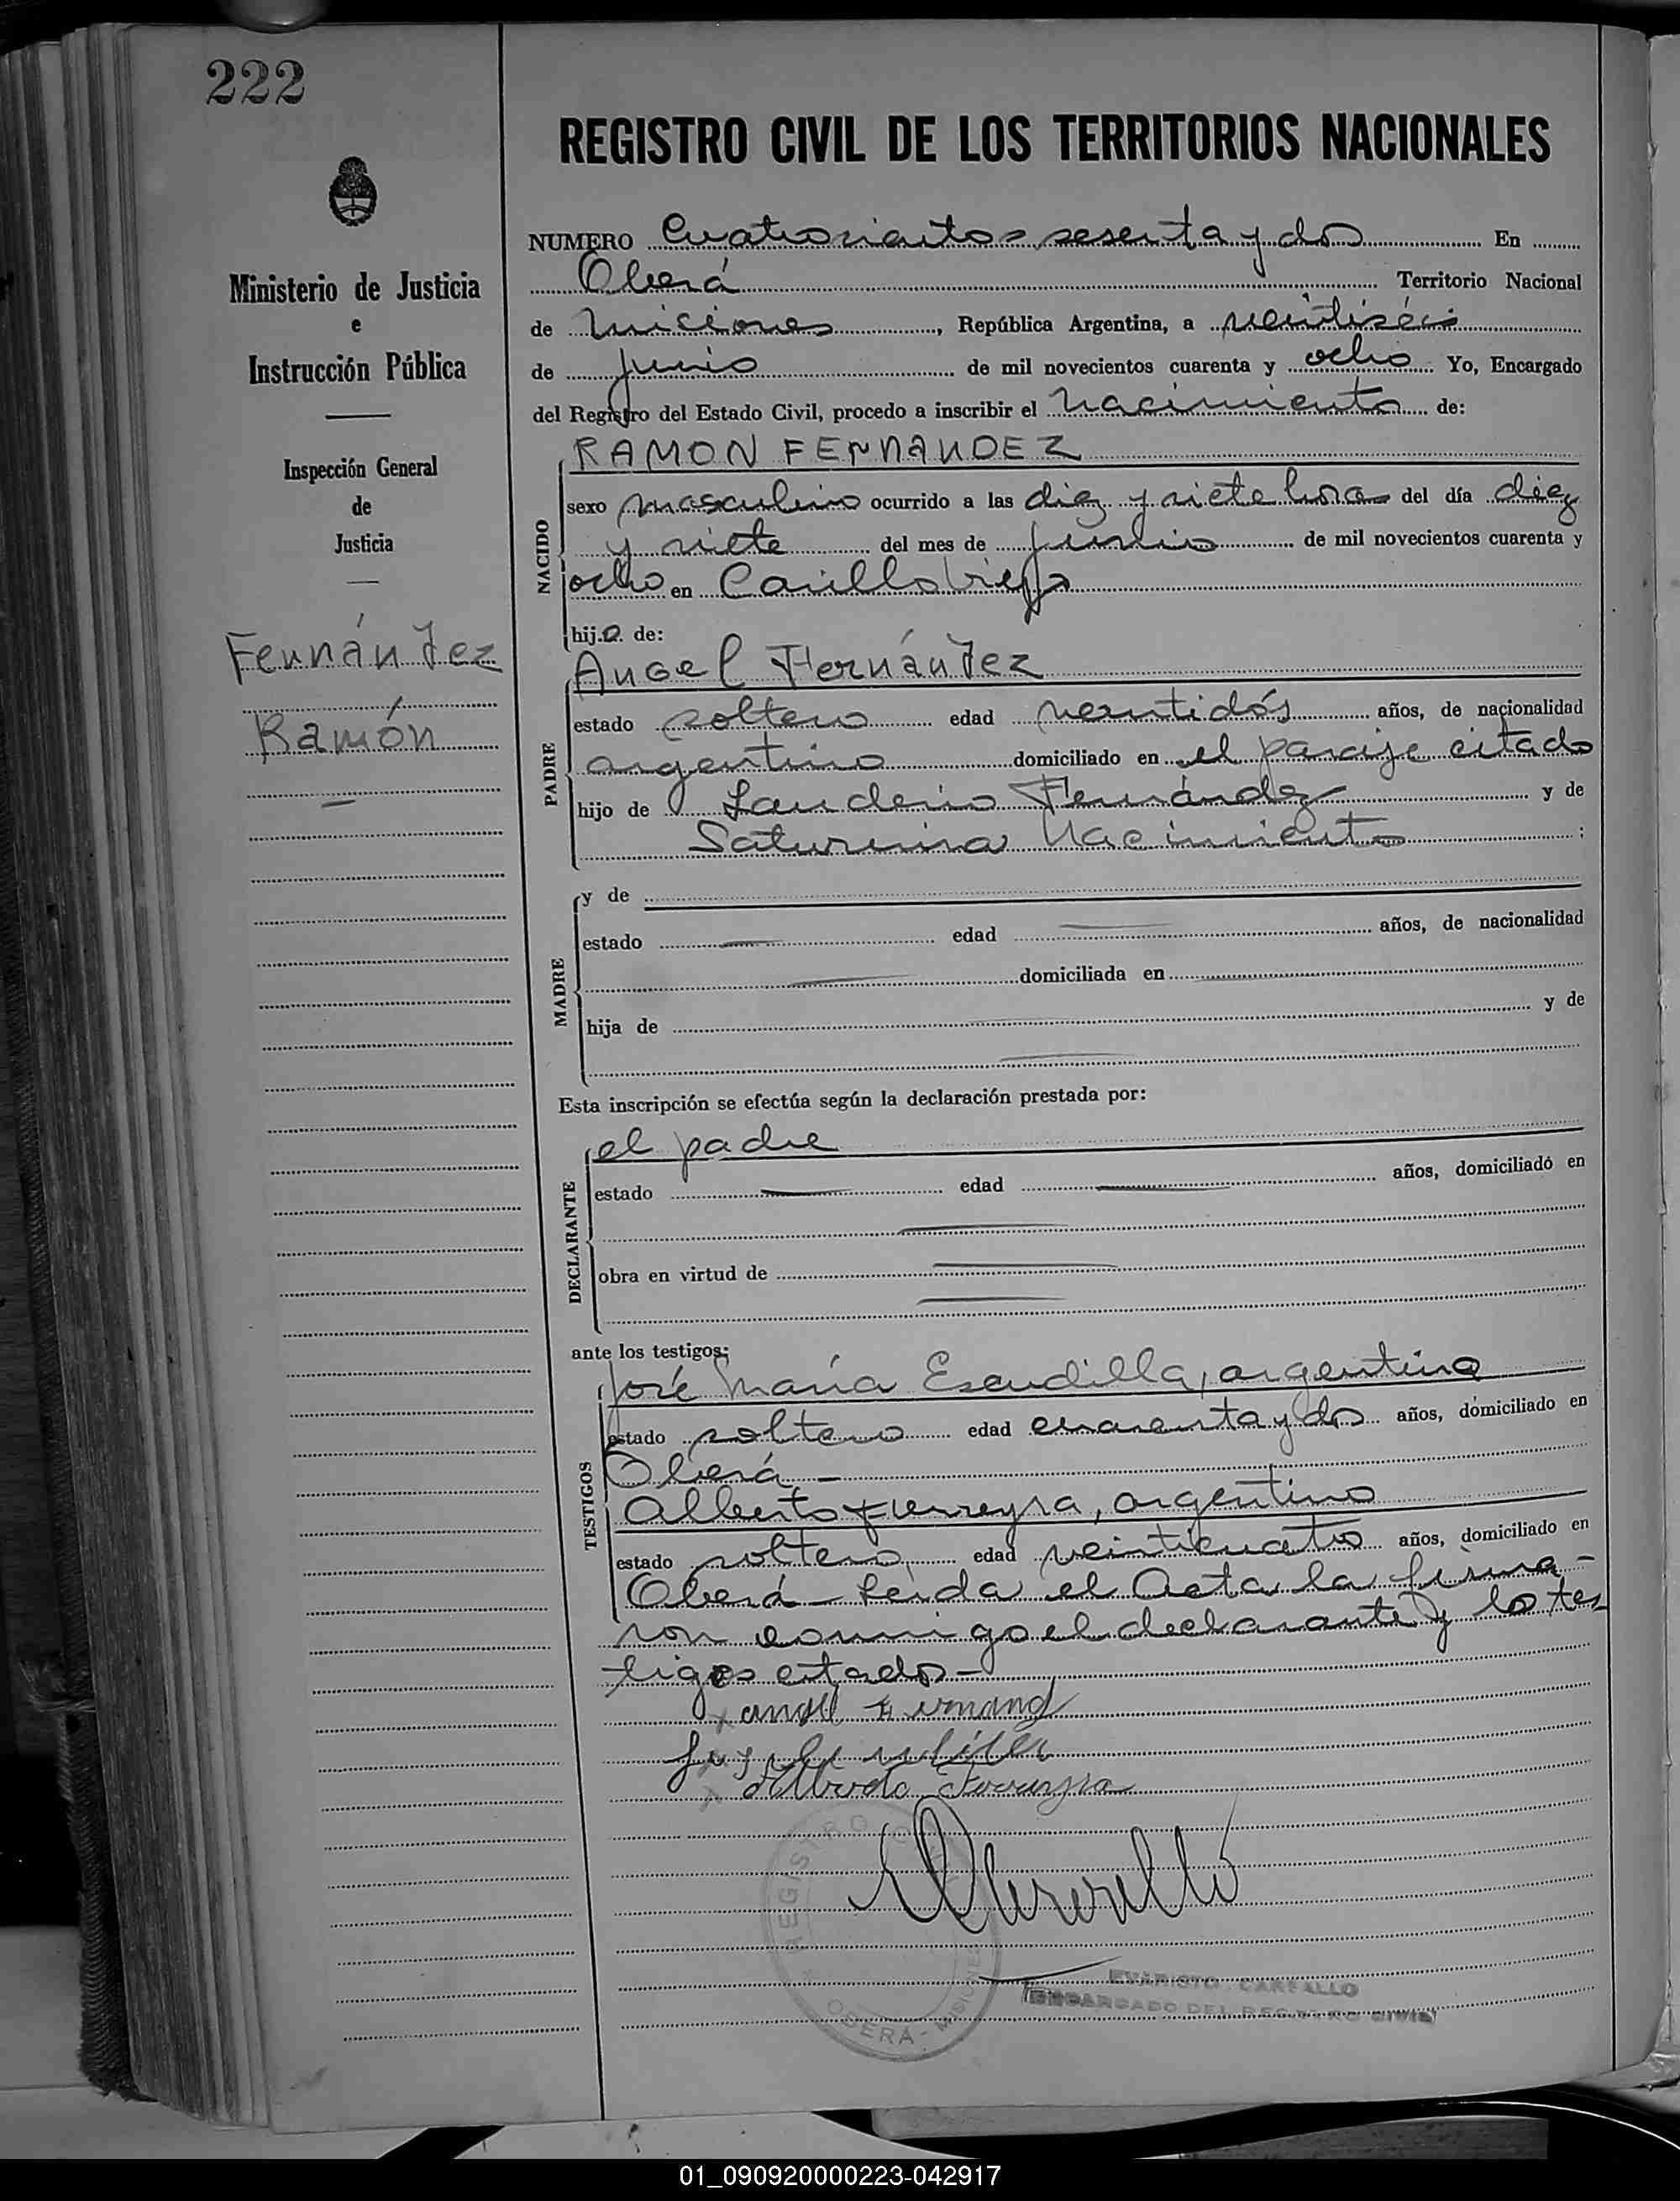 222
REGISTRO CIVIL DE LOS TERRITORIOS NACIONALES
Ministerio de Justicia
e
Instrucción Pública
Inspección General
de
Justicia
Fernández
Ramón
NUMERO Cuatrocientos sesenta y dos En
Oberá Territorio Nacional
de Misiones, República Argentina, a veintiséis
de Junio de mil novecientos cuarenta y ocho Yo, Encargado
del Registro del Estado Civil, procedo a inscribir el Nacimiento de:
NACIDO
RAMON FERNANDEZ
sexo masculino ocurrido a las diez y siete horas del día diez
y siete del mes de Junio de mil novecientos cuarenta y
ocho en
hijo de:
PADRE
Angel Fernández
estado soltero edad veintidós años, de nacionalidad
argentino domiciliado en el paraje citado
hijo de Fernández y de
Saturnina Nacimiento ;
MADRE
y de
estado edad años, de nacionalidad
domiciliada en
hija de y de
Esta inscripción se efectúa según la declaración prestada por:
DECLARANTE
el padre
estado edad años, domiciliado en
obra en virtud de
ante los testigos:
TESTIGOS
José María Escudilla, argentino
estado soltero edad cuarenta y dos años, domiciliado en
Oberá -
Alberto Ferreyra, argentino
estado soltero edad veinticuatro años, domiciliado en
Oberá - Leída el Acta la firma-
ron conmigo el declarante y los tes
tigos citados -
REGISTRO
OBERÁ - MISIONES
EVARISTO CARVALLO
ENCARGADO DEL REGISTRO CIVIL
01_090920000223-042917